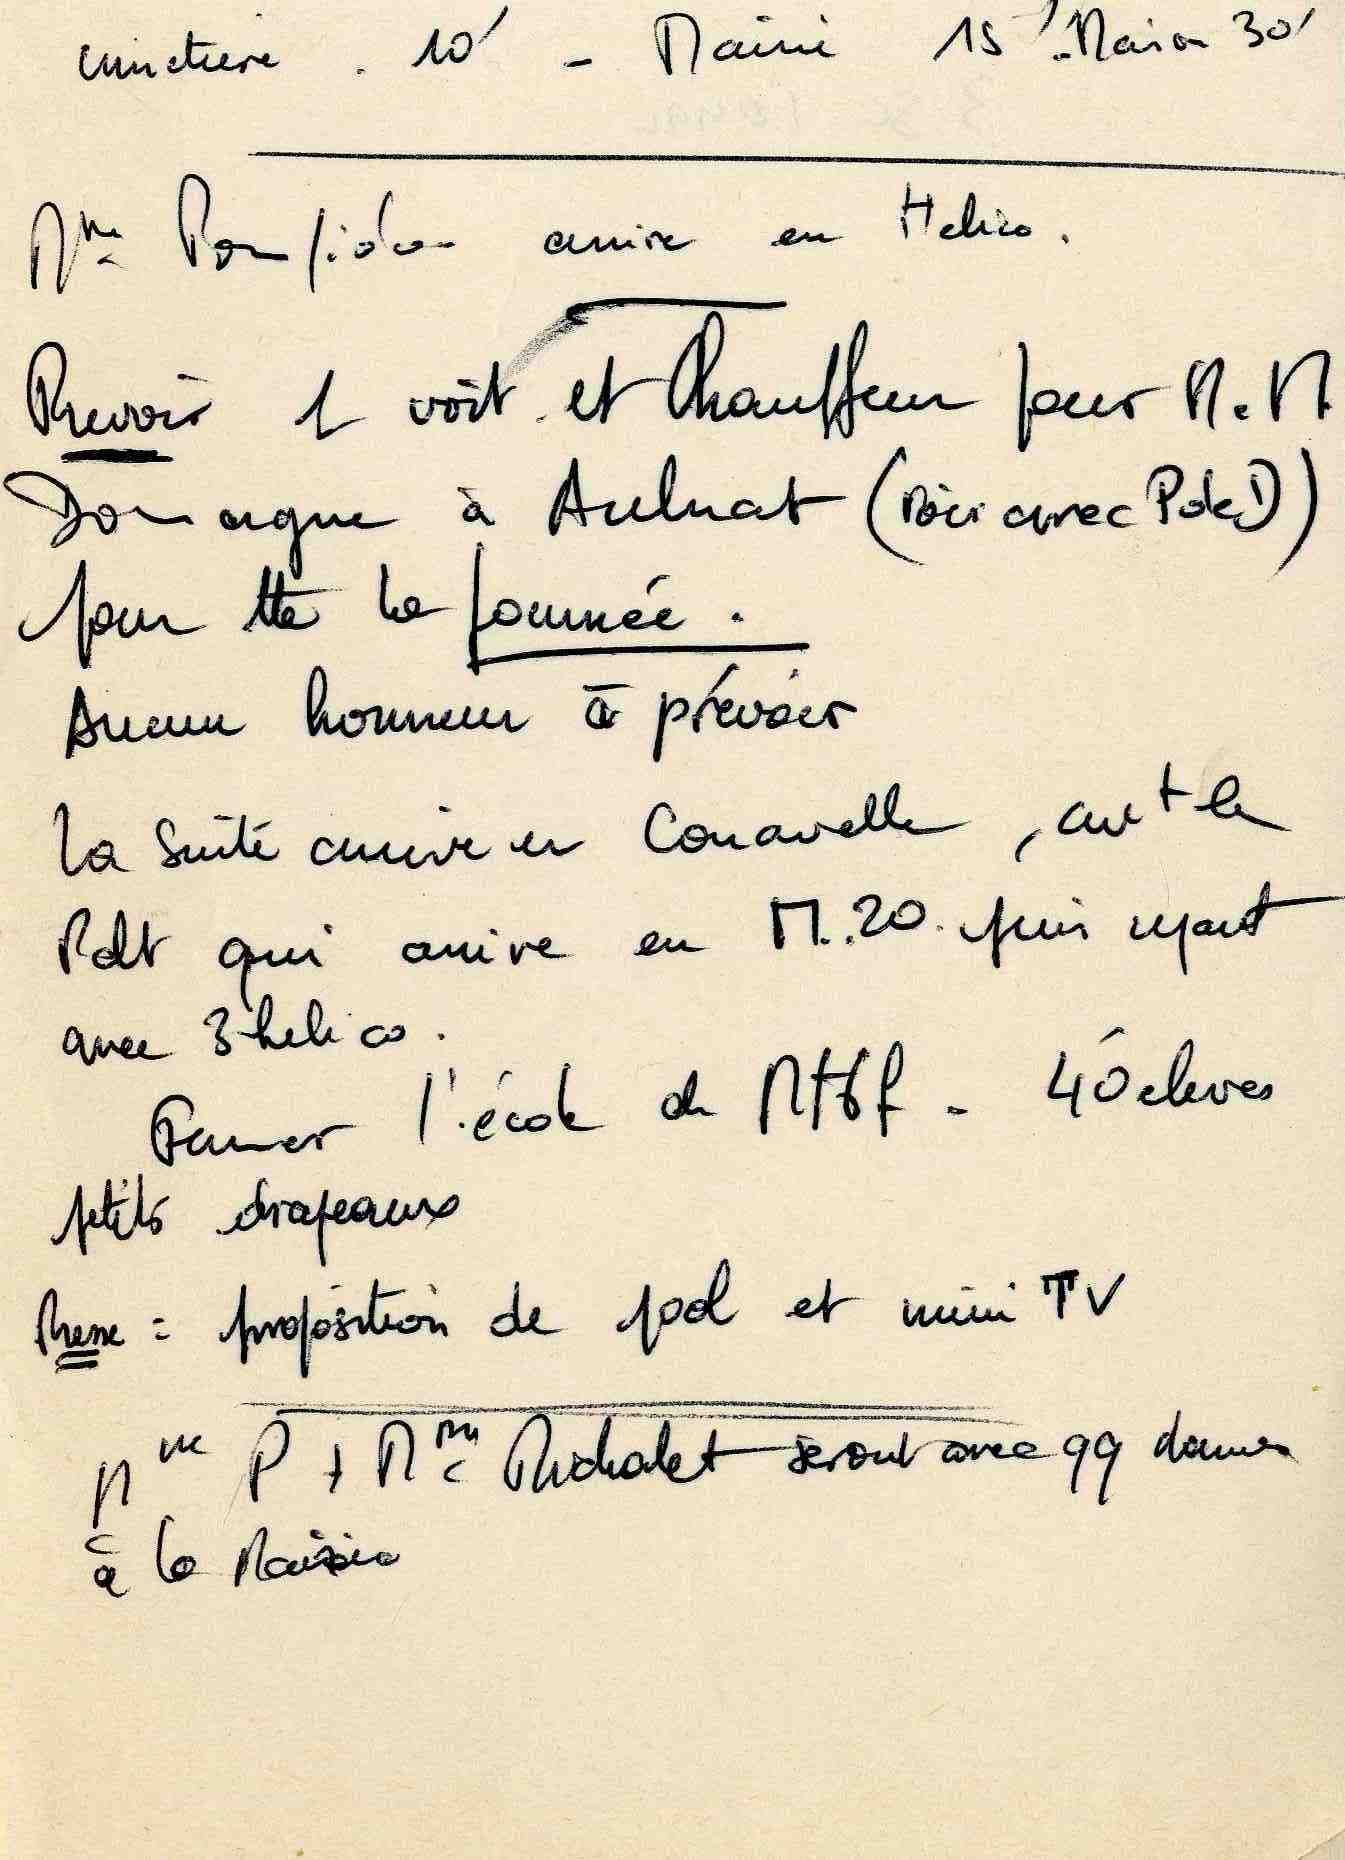 cimetière . 10' - Mairie 15' - Maison 30'
Mme Pompidou arrive en Helico.
Prevoir 1 voit. et Chauffeur pour M. M
Domergue à Aulnat (voir avec P de D)
pour tte la journée.
Aucun honneur à prévoir
La Suite arrive en Caravelle, avt le
Pdt qui arrive en M.20. puis repart
avec 3 helico.
l'école de - 40 eleves
petits drapeaux
Presse = proposition de pool et mini TV
Mme P + Mme Michalet seront avec qq dames
à la Mairie